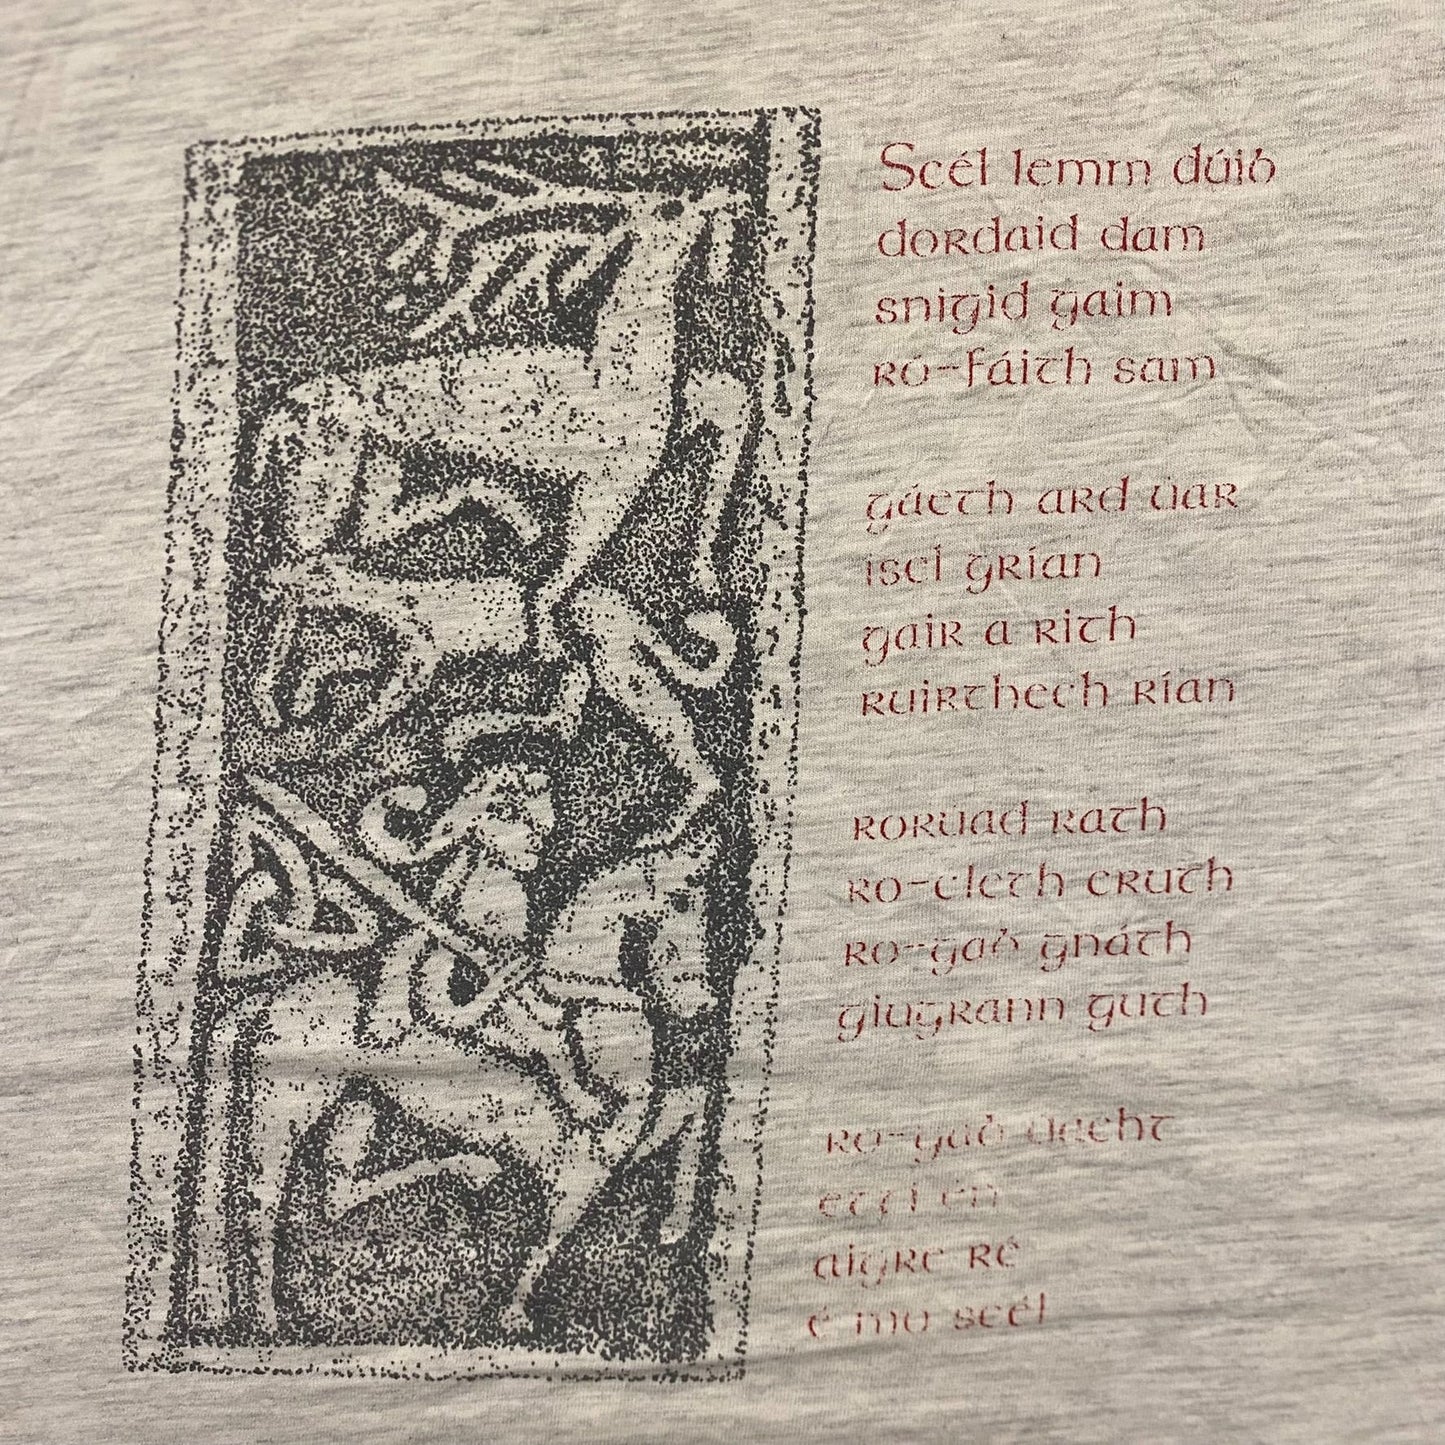 Scél lemm dúib
dordaid dam
snigid gaim
ró-fáith sam
gáeth ard úar
ísel grían
gair a rith
ruirthech rían
rorúad rath
ro-cleth cruth
ro-gab gnáth
giugrann guth
ro-gab úacht
etti én
aigre ré
é mo scél